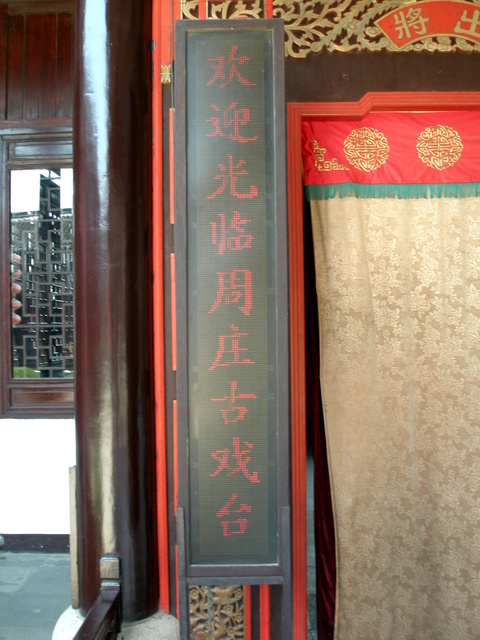 欢迎光临周庄古戏台
出將